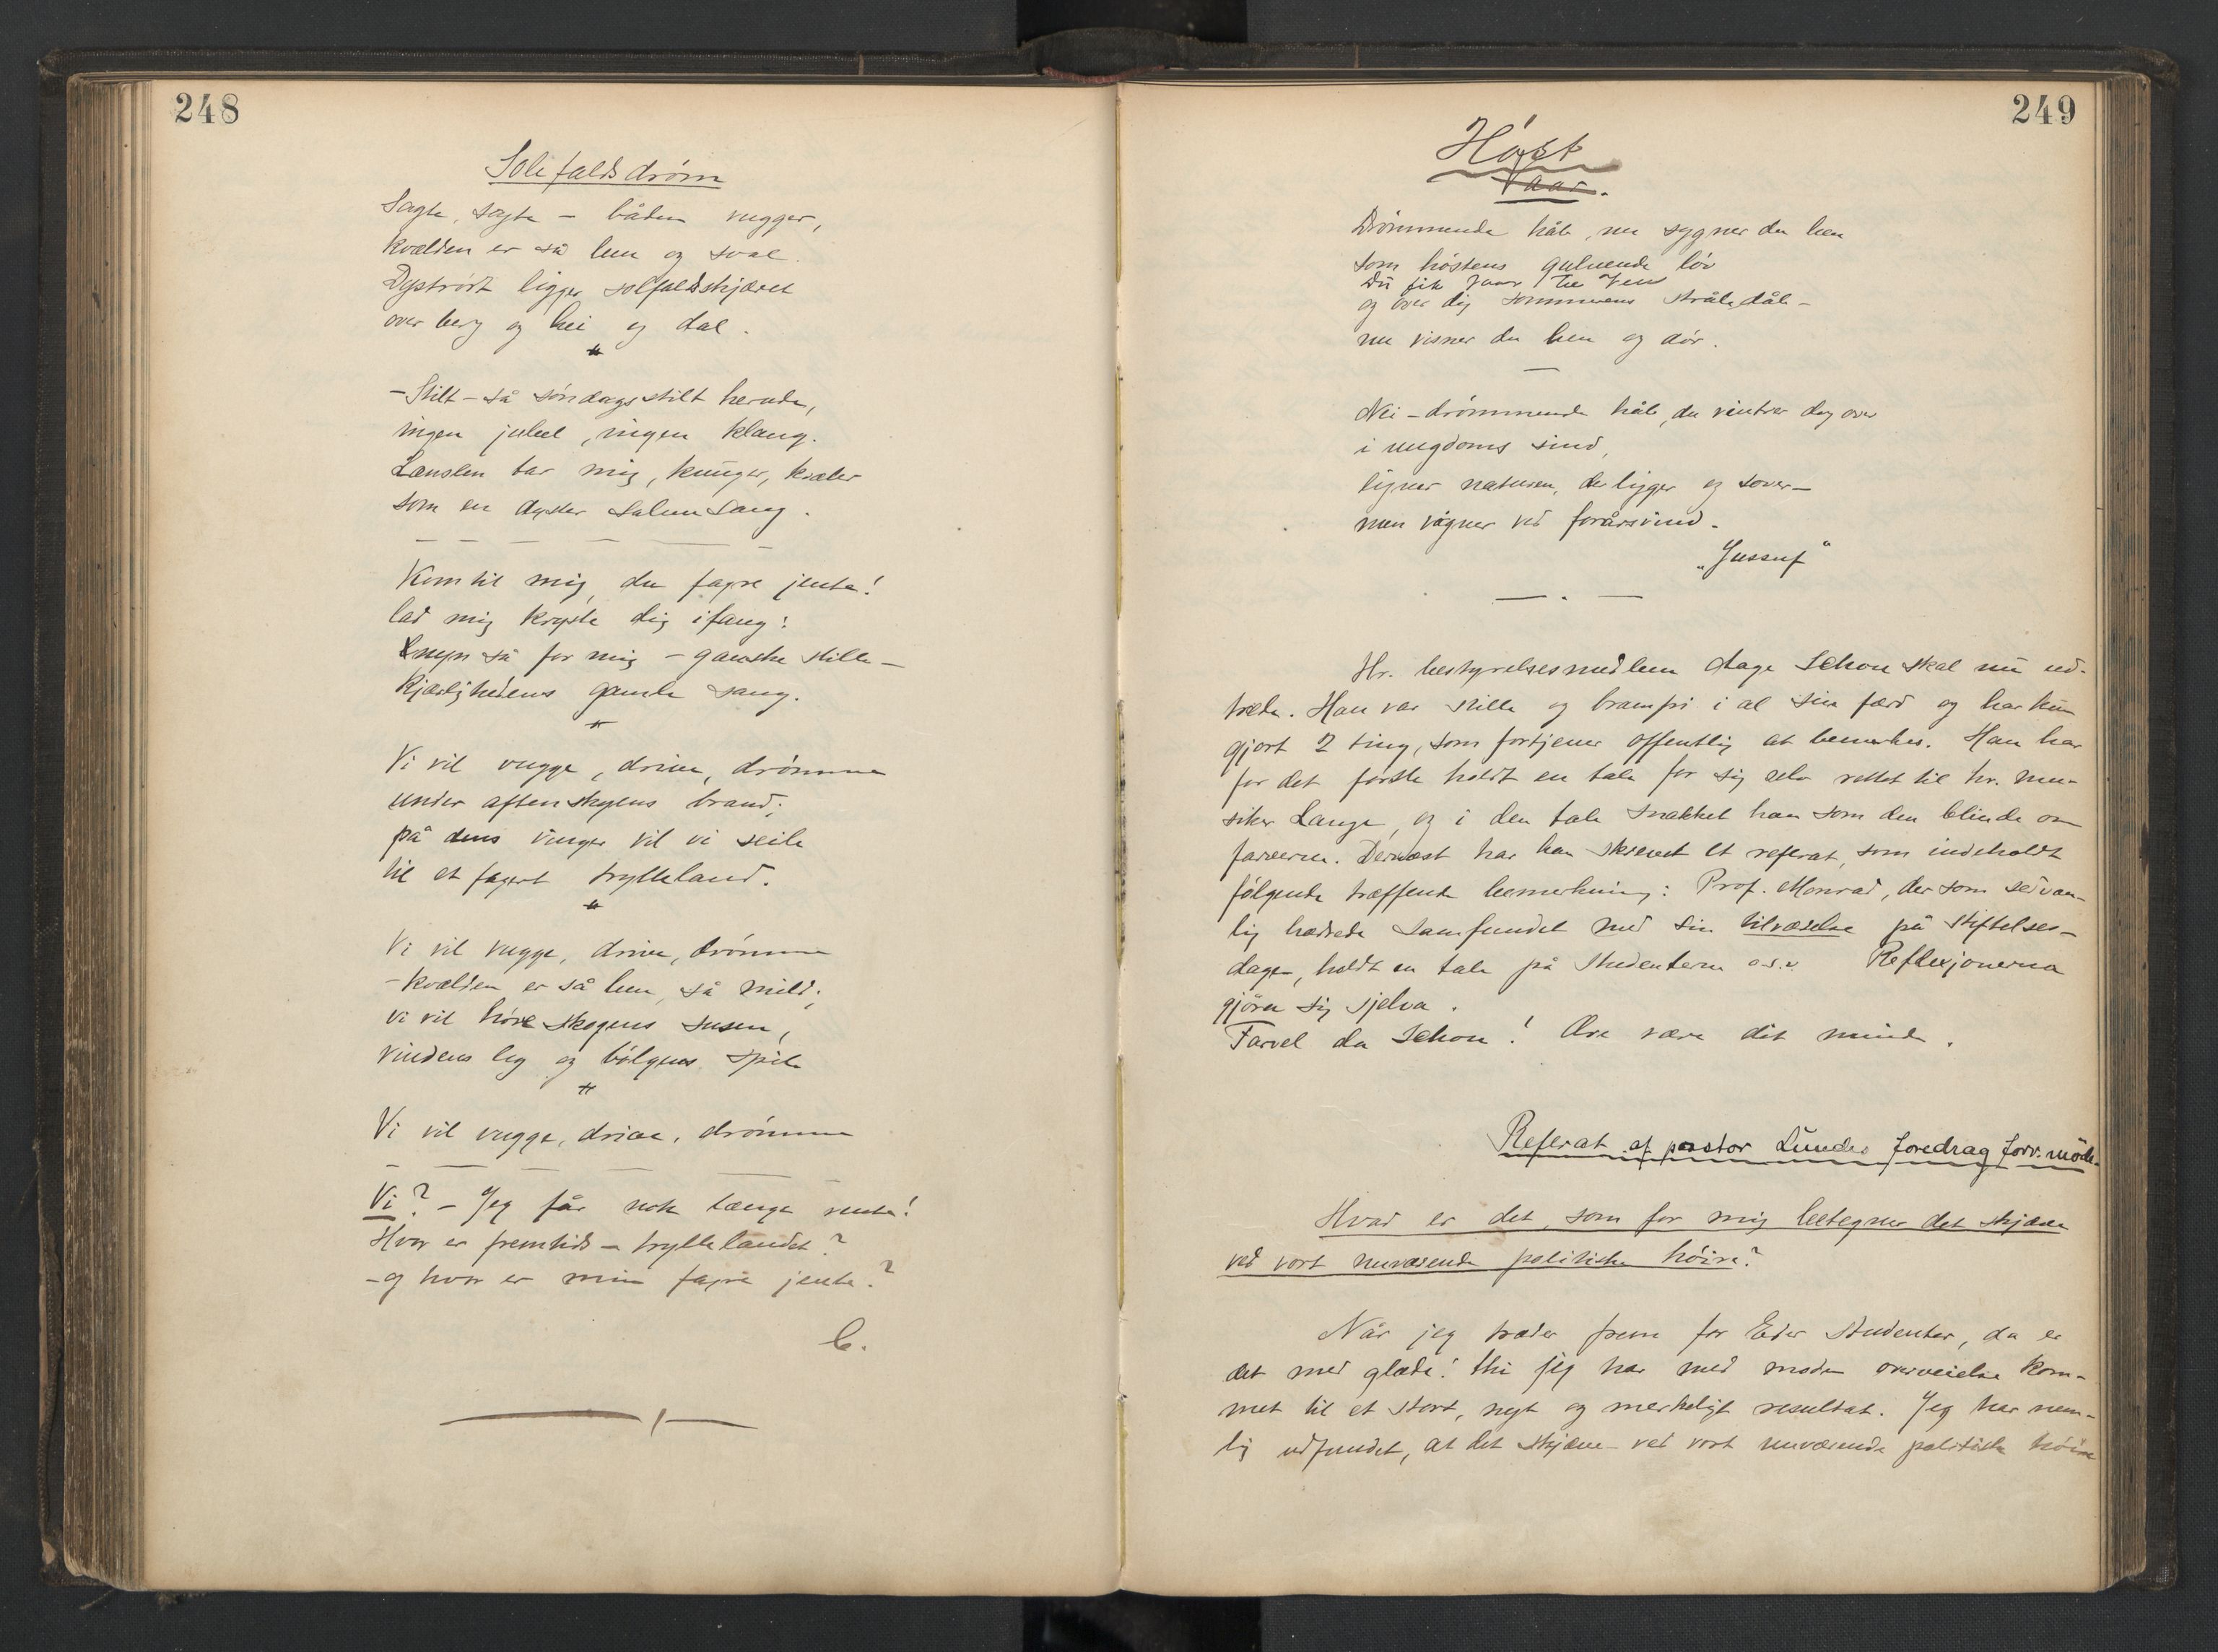 248
Solefaldsdrøm
Sagte, sagte – båden vugger,
kvælden er så lun og sval.
Dystrødt ligger solfaldsskjæret
over berg og hei og dal.
– Stilt – så søndagsstilt herude,
ingen jubel, ingen klang.
Længslen tar mig, tvinger, kvæler
som en dyster salmesang.
Kom til mig, du fagre jente!
lad mig kryste dig i fang:
Nynn så for mig – ganske stille –
Kjærlighedens gamle sang.
Vi vil vugge, drive, drømme
under aftenskyens brand;
på dens vinger vil vi seile
til et fagert trylleland.
Vi vil vugge, drive, drømme
– kvælden er så lun, så mild;
vi vil høre skogens susen,
vindens leg og bølgens spil
Vi vil vugge, drive, drømme
Vi? – Jeg får nok længe vente!
Hvor er fremtids-tryllelandet?
– og hvor er min fagre jente?
C.
249
Høst
Vaar.
Drømmende håb, nu sygner du hen
som høstens gulnende løv
Du fik vaar til ven
og over dig sommerens stråledåb –
nu visner du hen og dør.
Nei – drømmende håb, du vintrer dog over
i ungdoms sind,
ligner naturen, der ligger og sover –
men vågner ved forårsvind.
„Jussuf“
Hr. bestyrelsesmedlem Aage Schou skal nu ud-
træde. Han var stille og bramfri i al sin færd og har kun
gjort 2 ting, som fortjener offentlig at bemerkes. Han har
for det første holdt en tale for sig selv rettet til hr. mu-
siker Lange, og i den tale snakket han som den blinde om
farverne. Dernæst har han skrevet et referat, som indeholdt
følgende træffende bemerkning: Prof. Monrad, der som sedvan-
lig hædrede Samfundet med sin tilværelse på stiftelses-
dagen, holdt en tale på Studenterne o.s.v. Reflexjonerna
gjöra sig sjelva.
Farvel da Schou! Ære være dit minde.
Referat af pastor Lundes foredrag forr. möde.
Hvad er det, som for mig betegner det skjæve
ved vort nuværende politiske høire?
Når jeg træder frem for Eder studenter, da er
det med glæde! thi jeg har med moden overveielse kom-
met til et stort, nyt og merkeligt resultat. Jeg har nem-
lig udfundet, at det skjæve ved vort nuværende politiske høire